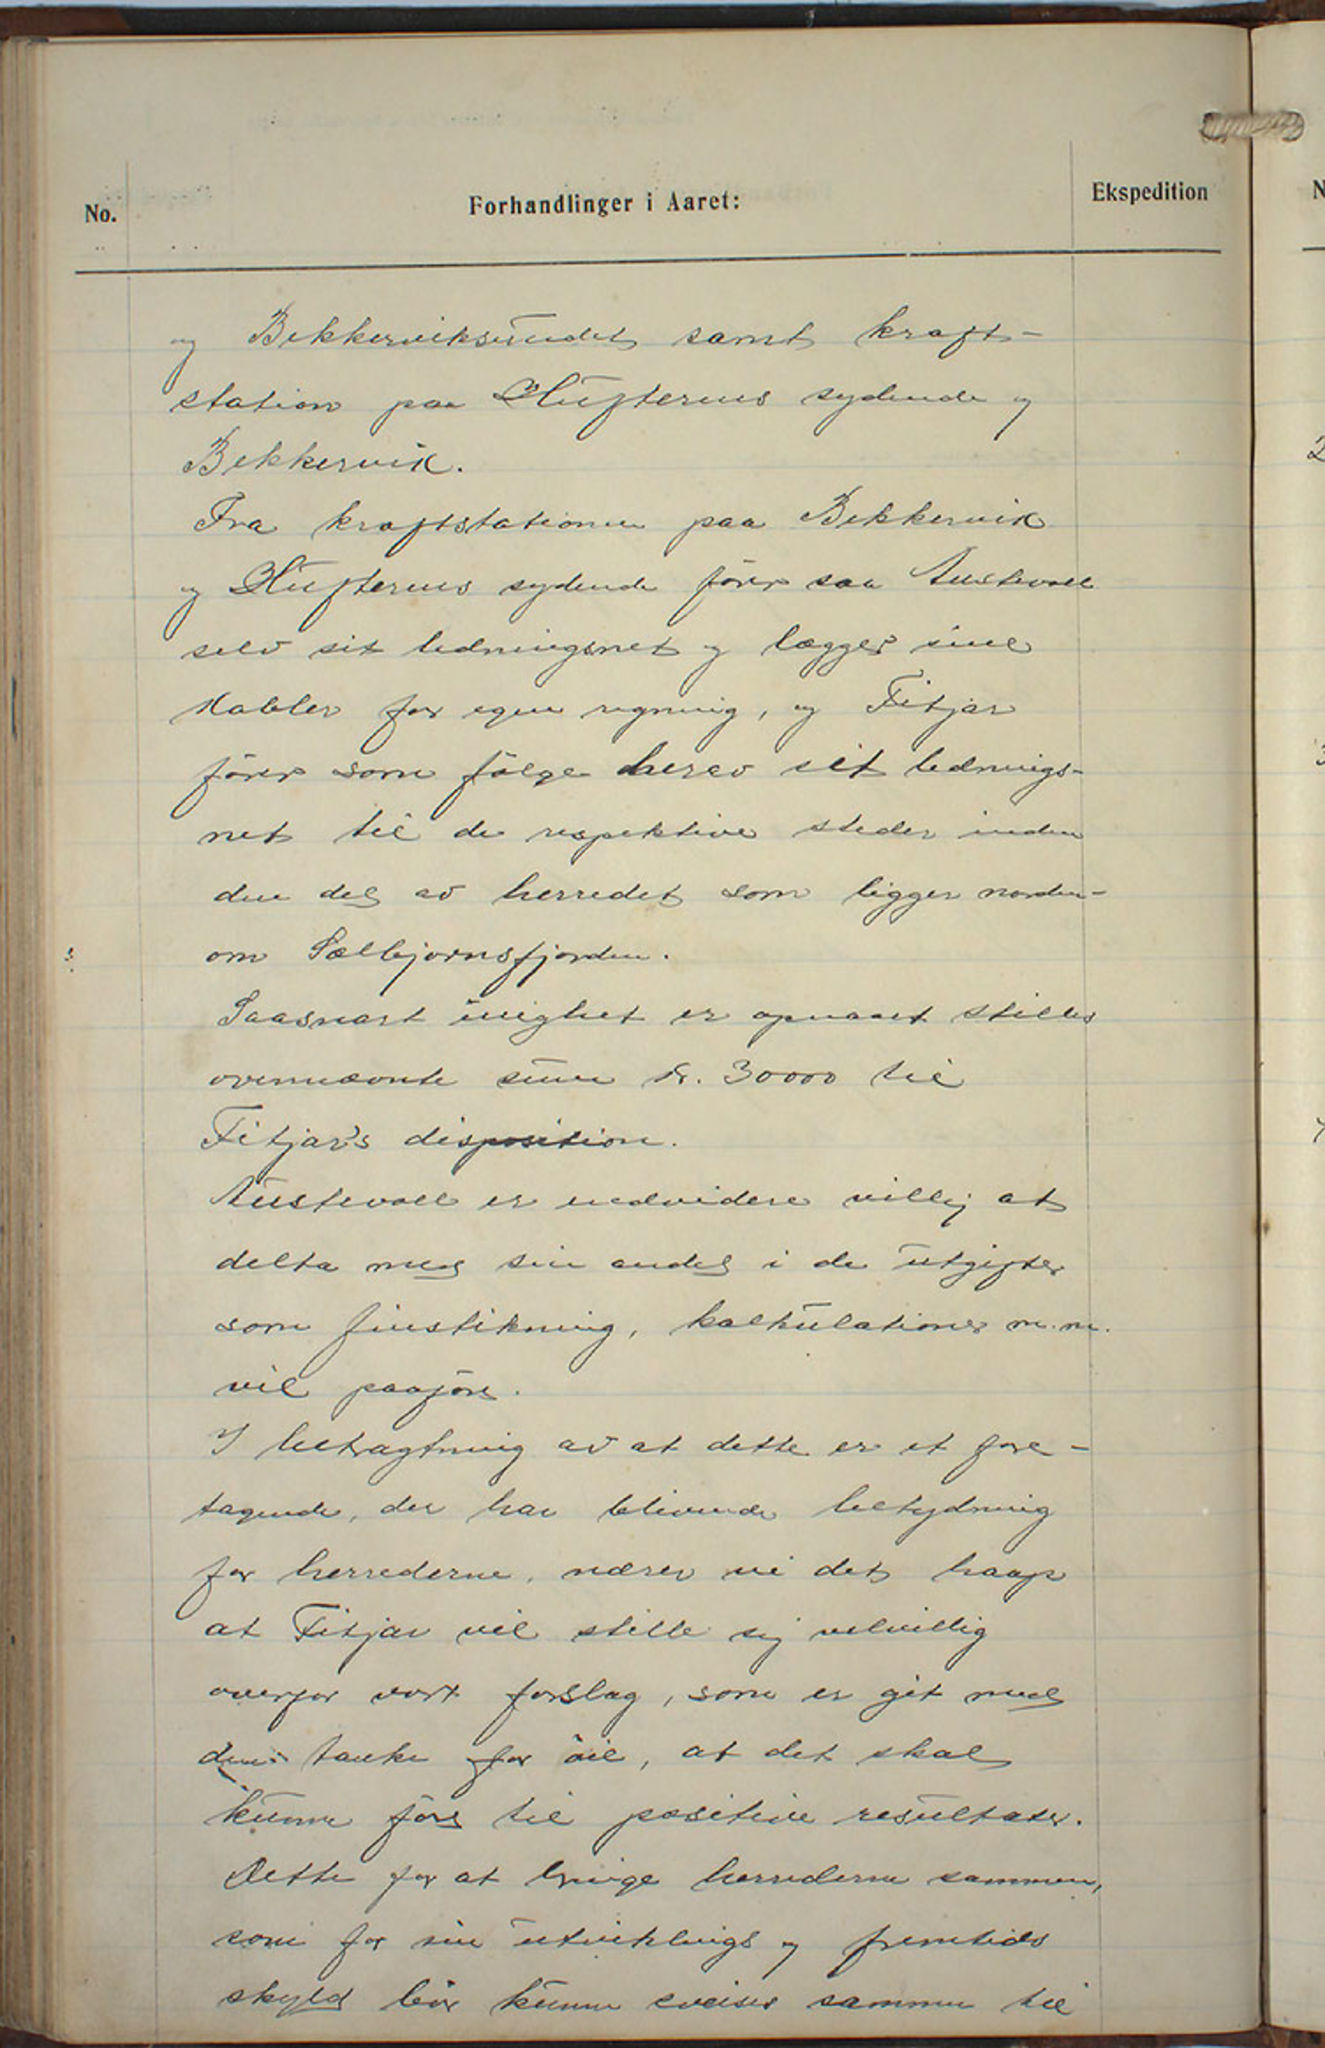 No.
Forhandlinger i Aaret:
Ekspedition
og Bekkerviksundet samt kraft-
station paa Hufterens sydende og
Bekkervik.
Fra kraftstationen paa Bekkervik
og Hufterens sydende fører saa Austevoll
selv sit ledningsnet og lægger sine
kabler for egen regning, og Fitjar
fører som følge herav sit lednings-
net til de respektive steder inden
den del av herredet som ligger norden-
om Sælbjørnsfjorden.
Saasnart enighet er opnaaet stilles
ovennævnte sum kr. 30000 til
Fitjar's disposition.
Austevoll er endvidere villig at
delta med sin andel i de utgifter
som finstikning, kalkulationer m.m.
vil paaføre.
I betragtning av at dette er et fore-
tagende, der har blivende betydning
for herrederne, nærer vi det haap
at Fitjar vil stille sig velvillig
overfor vort forslag, som er git med
den tanke for øie, at det skal
kunne føre til positive resultater.
Dette for at bringe herrederne sammen,
som for sin utviklings og fremtids
skyld bør kunne sveises sammen til